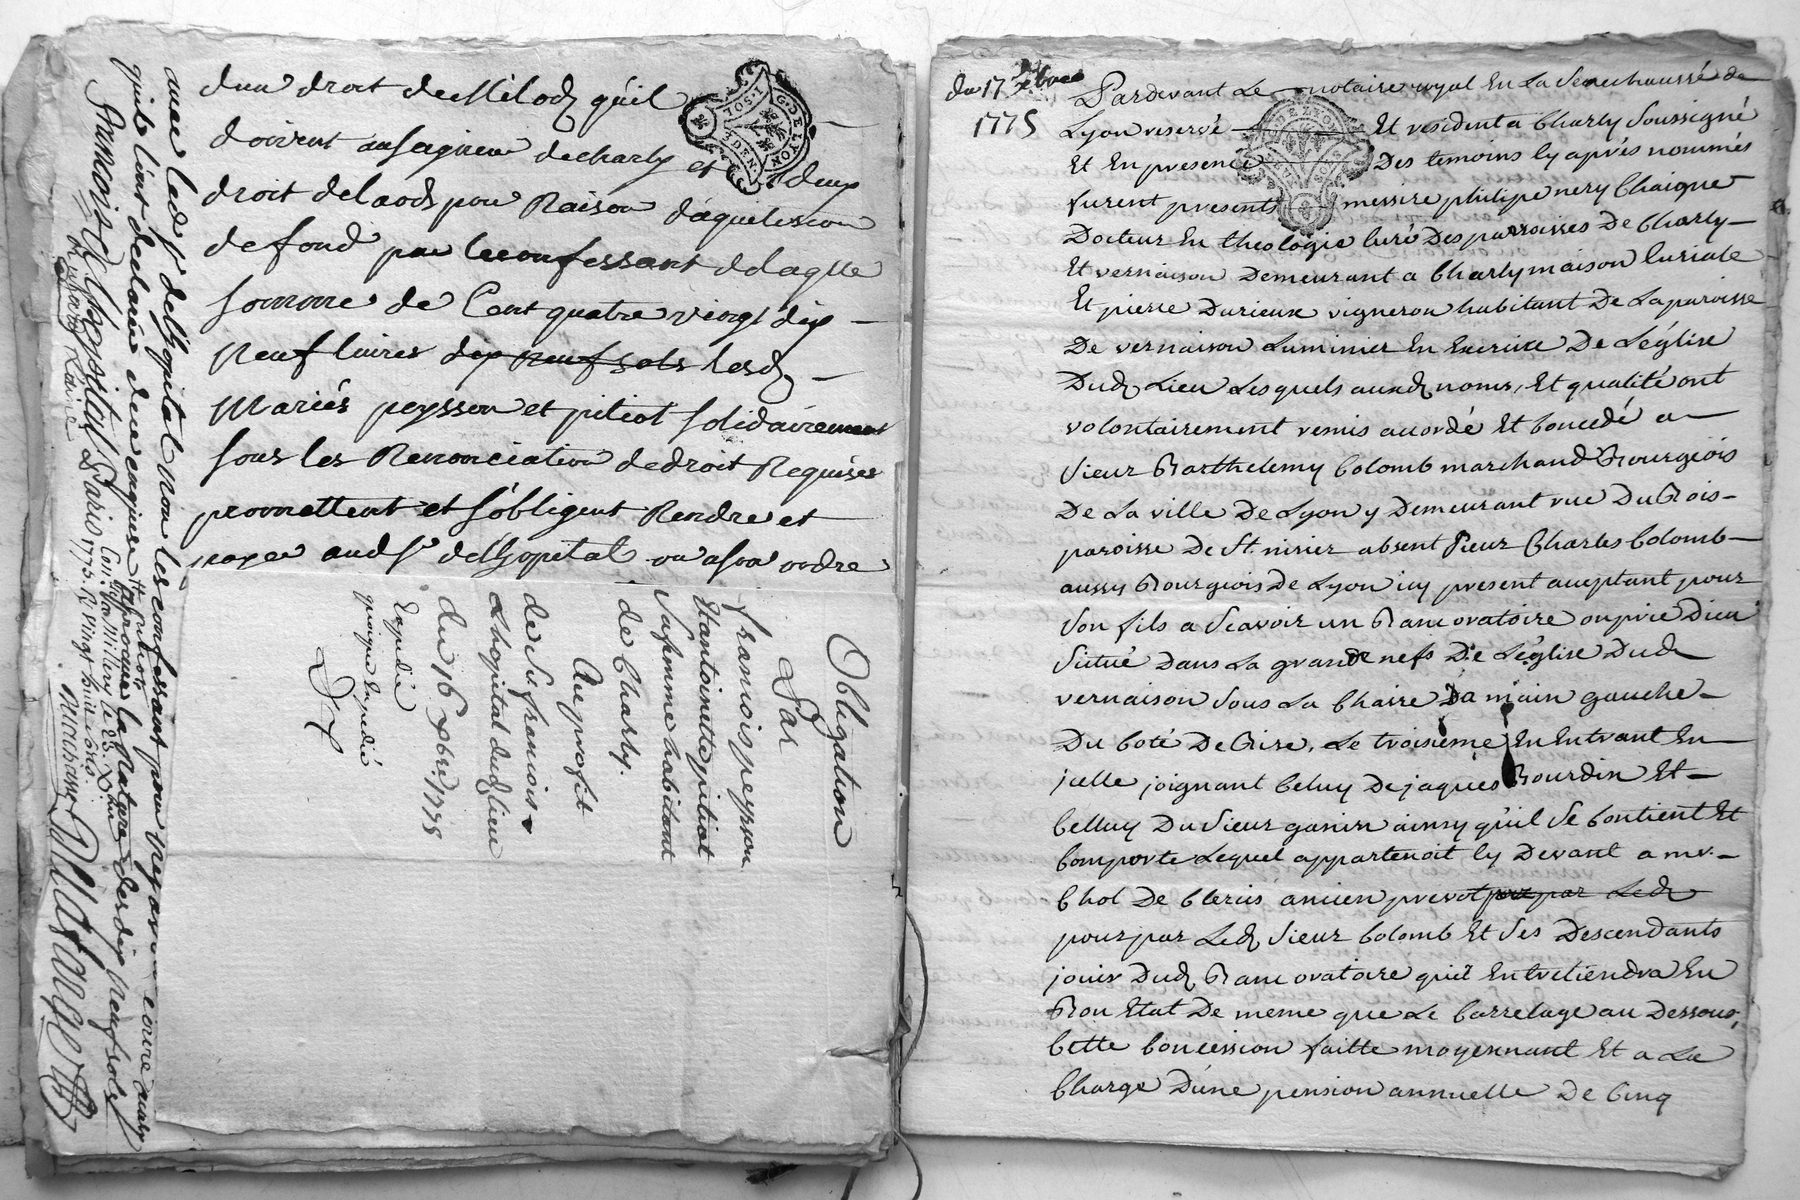 d'un droit de Milod qu'il
doivent au seigneur de charly et deux
droit de laods pour Raison d'aquilision
de fond par le confessant de laqlle
somme de Cent quatre vingt dix
neuf livres dix neuf sols lesd
Mariés peysson et pitiot solidairement
sous les Renonciation de droit Requises
promettent et s'obligent Rendre et
payer aud Sr delhopital ou a son ordre
avec led Sr delhopital non les confessant pour ne savoir écrire
qu'ils l'ont déclaré de ce enquis
francois delhopital
approuve la Rature des dix neuf sols
Con. a Millery le 23 Xbre
1775. R vingt huit sols
Obligation
Par
francois peysson
et antoinette pitiot
Sa femme habitant
de Charly.
Au profit
de Sr francois
Lhopital dud lieu
du 16 Xbre 1775
Expedié
G. DE LYON
I. SOL
DEN.
du 17 Xbre
1775
Pardevant Le notaire royal En La Senechaussé de
Lyon reservé Et resident a Charly Soussigné
Et En presence Des temoins Cy aprés nommés
furent presents messire philipe nery Chaigne
Docteur En theologie Curé Des parroisses De Charly
Et vernaison Demeurant a Charly maison Curiale
Et pierre Durieux vigneron habitant De La paroisse
De vernaison Luminier En Exercice De L'église
Dud Lieu Lesquels auxd noms, Et qualité ont
volontairement remis accordé Et Concedé a
Sieur Barthelemy Colomb marchand Bourgeois
De La ville De Lyon y Demeurant rue Du Bois
paroisse De St nizier absent Sieur Charles Colomb
aussy Bourgeois De Lyon icy present acceptant pour
Son fils a Scavoir un Banc oratoire ou prie Dieu
Situé Dans La grande nefs De L'église Dud
vernaison Sous La Chaire Da main gauche
Du Coté De Bise, Le troisieme En Entrant En
icelle joignant Celuy De jaques Bourdin Et
Celluy Du Sieur ganin ainsy qu'il Se Contient Et
Comporte Lequel appartenoit Cy Devant a mr.
Chol De Clerius ancien prevot pour par Led
pour par Led Sieur Colomb Et Ses Descendants
jouir Dud Banc oratoire qu'il Entretiendra En
Bon Etat De meme que Le Carrelage au Dessous,
Cette Concession faitte moyennant Et a La
Charge D'une pension annuelle De Cinq